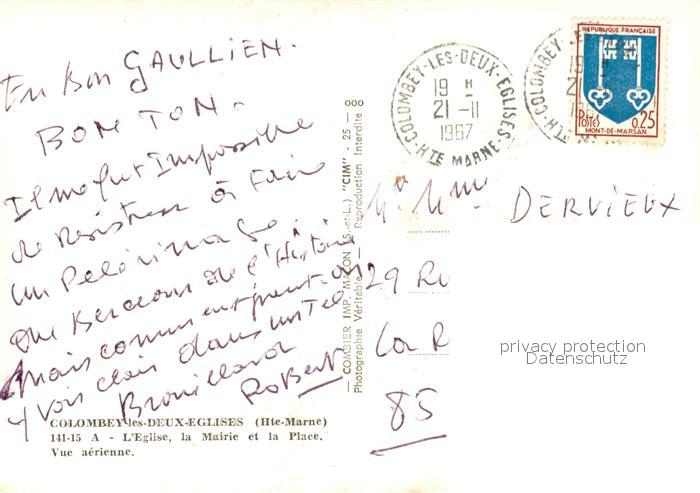 En bon GAULLIEN.
BON TON.
Il me fut Impossible
de Résister à Faire
un Pelérinage
au Berceau de l'Histoire
Mais comment peut-on
y voir clair dans un tel
Brouillard
Robert
COLOMBEY-les-DEUX-EGLISES (Hte-Marne)
141-15 A - L'Eglise, la Mairie et la Place.
Vue aérienne.
— COMBIER IMP. MACON (S.-et-L.) "CIM" - 25 — 000
Photographie Véritable — Reproduction Interdite
COLOMBEY-LES-DEUX-EGLISES
19 H
21-11
1967
HTE MARNE
COLOMBEY
19 H
21
HTE
REPUBLIQUE FRANÇAISE
POSTES 0,25
MONT-DE-MARSAN
Mr Mme DERVIEUX
29 Ru
La R
85
privacy protection
Datenschutz